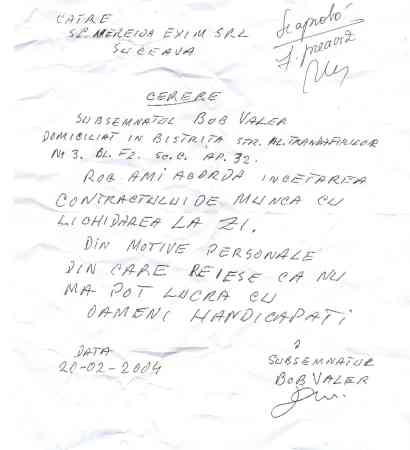 CATRE
SC. MEREIVA EXIM SRL
SUCEAVA
Se aprobă
f. preaviz
CERERE
SUBSEMNATUL BOB VALER
DOMICILIAT IN BISTRITA STR. AL. TRANDAFIRILOR
Nr 3. BL. F2. SC. C. AP. 32.
ROG AMI ACORDA INCETAREA
CONTRACTULUI DE MUNCA CU
LICHIDAREA LA ZI.
DIN MOTIVE PERSONALE
DIN CARE REIESE CA NU
MA POT LUCRA CU
OAMENI HANDICAPATI
DATA
20-02-2004
SUBSEMNATUL
BOB VALER